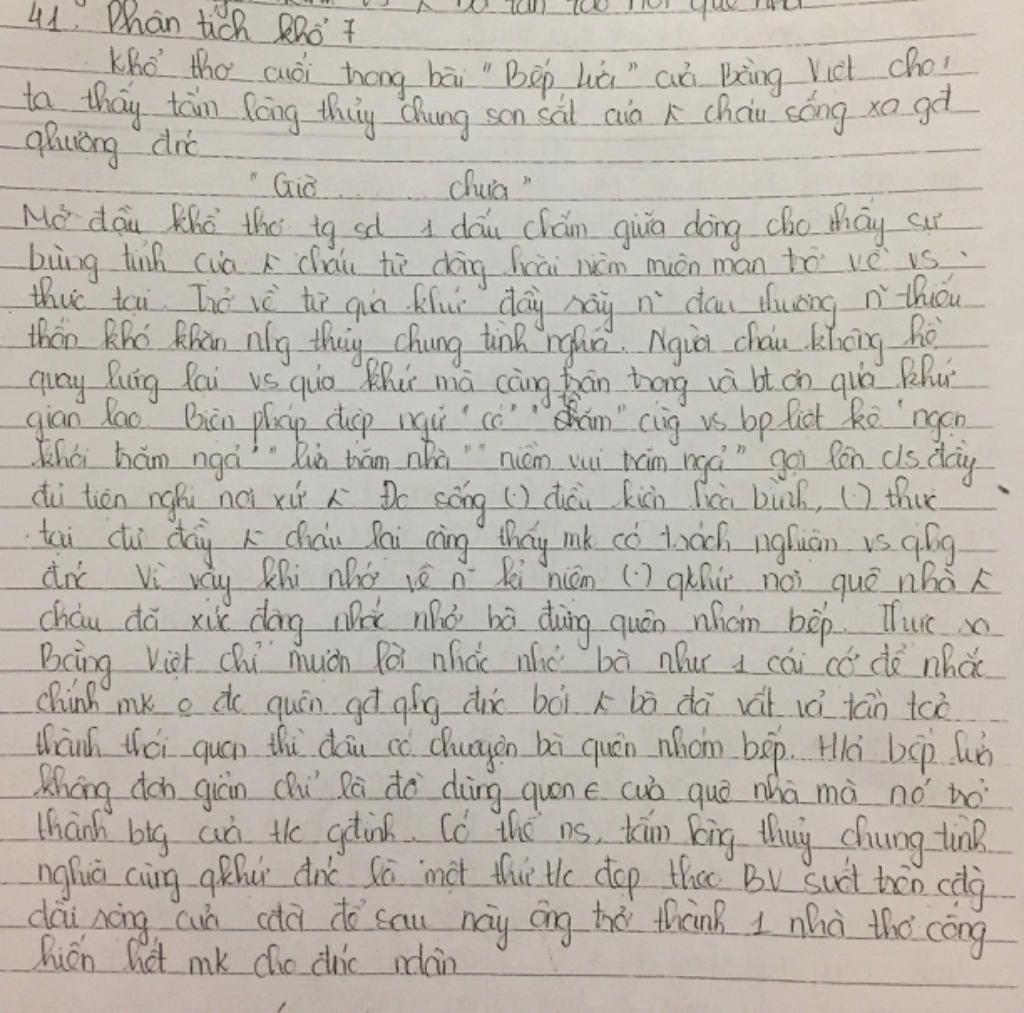 41. Phân tích khổ 7
Khổ thơ cuối trong bài "Bếp lửa" của Bằng Việt cho
ta thấy tấm lòng thủy chung son sắt của ʎ cháu sống xa gđ
qhương đnc
"Giờ ... chưa"
Mở đầu khổ thơ tg sd 1 dấu chấm giữa dòng cho thấy sự
bừng tỉnh của ʎ cháu từ dòng hoài niệm miên man trở về vs
thực tại. Trở về từ quá khứ đầy n~ đau thương n~ thiếu
thốn khó khăn nhg thủy chung tình nghĩa. Người cháu không hề
quay lưng lại vs quá khứ mà càng trân trọng và bt ơn quá khứ
gian lao. Biện pháp điệp ngữ "có" "trăm" cùg vs bp liệt kê "ngọn
khói trăm ngả" "lửa trăm nhà" "niềm vui trăm ngả" gợi lên c/s đầy
đủ tiện nghi nơi xứ ʎ Đc sống (.) điều kiện hòa bình, (.) thực
tại đủ đầy ʎ cháu lại càng thấy mk có trách nghiệm vs qhg
đnc Vì vậy khi nhớ về n~ kỉ niệm (.) qkhứ nơi quê nhà ʎ
cháu đã xúc động nhắc nhở bà đừng quên nhóm bếp. Thực ra
Bằng Việt chỉ mượn lời nhắc nhở bà như 1 cái cớ để nhắc
chính mk o đc quên gđ qhg đnc bởi ʎ bà đã vất vả tần tảo
thành thói quen thì đâu có chuyện bà quên nhóm bếp. H/a bếp lửa
không đơn giản chỉ là đồ dùng quen € của quê nhà mà nó trở
thành btg của t/c gđình. Có thể ns, tấm lòng thuỷ chung tình
nghĩa cùng qkhứ đnc là một thứ t/c đẹp theo BV suốt trên cđg
dài rộng của cđời để sau này ông trở thành 1 nhà thơ cống
hiến hết mk cho đnc ndân